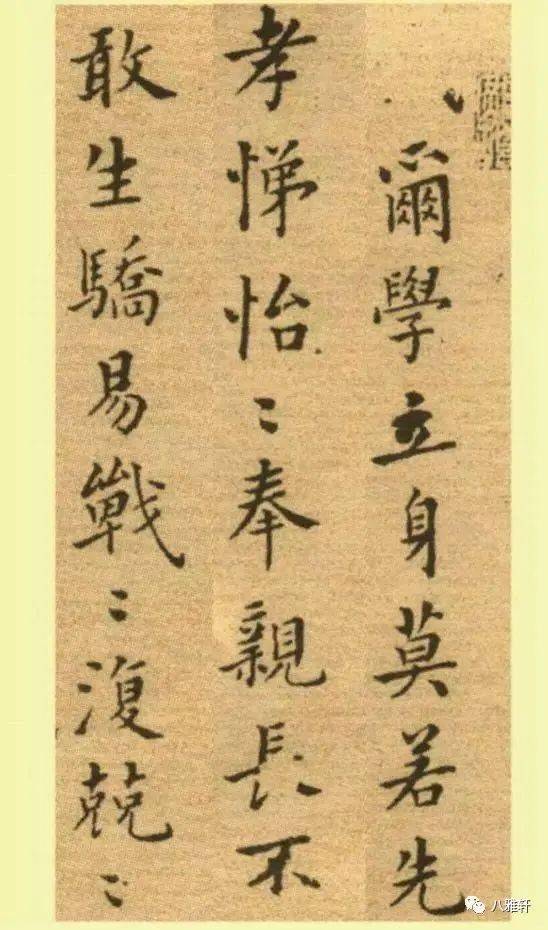 爾學立身莫若先
孝悌怡〻奉親長不
敢生驕易戰〻復兢〻
八雅轩